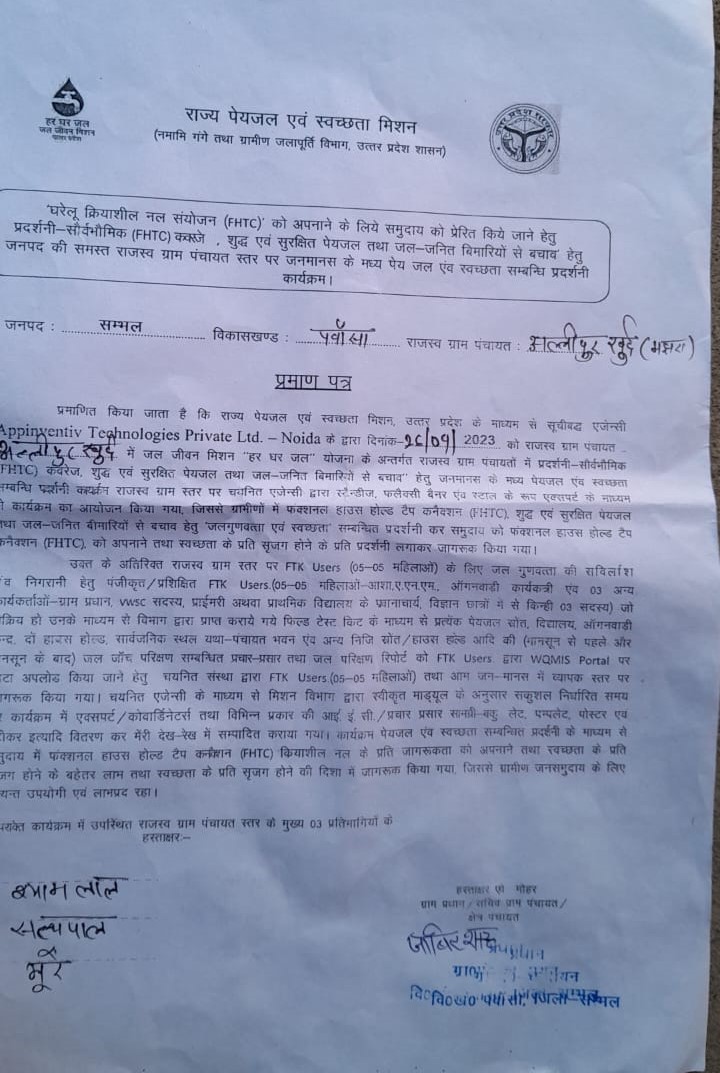 हर घर जल
जल जीवन मिशन
राज्य पेयजल एवं स्वच्छता मिशन
(नमामि गंगे तथा ग्रामीण जलापूर्ति विभाग, उत्तर प्रदेश शासन)
'घरेलू क्रियाशील नल संयोजन (FHTC)' को अपनाने के लिये समुदाय को प्रेरित किये जाने हेतु
प्रदर्शनी–सौर्वभौमिक (FHTC) कवरेज , शुद्ध एवं सुरक्षित पेयजल तथा जल–जनित बिमारियों से बचाव' हेतु
जनपद की समस्त राजस्व ग्राम पंचायत स्तर पर जनमानस के मध्य पेय जल एंव स्वच्छता सम्बन्धि प्रदर्शनी
कार्यक्रम।
जनपद : सम्भल विकासखण्ड : पवाँसा राजस्व ग्राम पंचायत : मल्लीपुर खुर्द
प्रमाण पत्र
प्रमाणित किया जाता है कि राज्य पेयजल एवं स्वच्छता मिशन, उत्तर प्रदेश के माध्यम से सूचीबद्ध एजेन्सी
Appinventiv Technologies Private Ltd. – Noida के द्वारा दिनांक-26/09/ 2023 को राजस्व ग्राम पंचायत
मल्लीपुर खुर्द में जल जीवन मिशन "हर घर जल" योजना के अन्तर्गत राजस्व ग्राम पंचायतों में प्रदर्शनी–सौर्वभौमिक
(FHTC) कवरेज, शुद्ध एवं सुरक्षित पेयजल तथा जल–जनित बिमारियों से बचाव" हेतु जनमानस के मध्य पेयजल एंव स्वच्छता
सम्बन्धि प्रदर्शनी कार्यक्रम राजस्व ग्राम स्तर पर चयनित एजेन्सी द्वारा स्टैन्डीज, फलैक्सी बैनर एंव स्टाल के रूप एक्सपर्ट के माध्यम
कार्यक्रम का आयोजन किया गया, जिससे ग्रामीणों में फक्शनल हाउस होल्ड टैप कनैक्शन (FHTC), शुद्ध एवं सुरक्षित पेयजल
तथा जल–जनित बीमारियों से बचाव हेतु 'जलगुणवत्ता एवं स्वच्छता' सम्बन्धित प्रदर्शनी कर समुदाय को फंक्शनल हाउस होल्ड टैप
कनैक्शन (FHTC), को अपनाने तथा स्वच्छता के प्रति सृजग होने के प्रति प्रदर्शनी लगाकर जागरूक किया गया।
उक्त के अतिरिक्त राजस्व ग्राम स्तर पर FTK Users (05–05 महिलाओं) के लिए जल गुणवत्ता की सर्विलांश
निगरानी हेतु पंजीकृत/प्रशिक्षित FTK Users.(05–05 महिलाओ–आशा,ए.एन.एम., ऑगनवाड़ी कार्यकत्री एंव 03 अन्य
कार्यकर्ताओं–ग्राम प्रधान, vwsc सदस्य, प्राईमरी अथवा प्राथमिक विद्यालय के प्रधानाचार्य, विज्ञान छात्रों में से किन्ही 03 सदस्य) जो
हो उनके माध्यम से विभाग द्वारा प्राप्त कराये गये फिल्ड टेस्ट किट के माध्यम से प्रत्येक पेयजल स्रोत, विद्यालय, ऑगनवाड़ी
दो हाउस होल्ड, सार्वजनिक स्थल यथा–पंचायत भवन एंव अन्य निजि स्रोत/हाउस हल्ड आदि की (मानसून से पहले और
मानसून के बाद) जल जाँच परिक्षण सम्बन्धित प्रचार–प्रसार तथा जल परिक्षण रिपोर्ट को FTK Users द्वारा WQMIS Portal पर
अपलोड किया जाने हेतु चयनित संस्था द्वारा FTK Users.(05–05 महिलाओं) तथा आम जन–मानस में व्यापक स्तर पर
जागरूक किया गया। चयनित एजेन्सी के माध्यम से मिशन विभाग द्वारा स्वीकृत माड्यूल के अनुसार सकुशल निर्धारित समय
कार्यक्रम में एक्सपर्ट/कोवार्डिनेटर्स तथा विभिन्न प्रकार की आई.ई.सी./प्रचार प्रसार सामग्री–बुक लेट, पम्पलेट, पोस्टर एवं
इत्यादि वितरण कर मेरी देख–रेख में सम्पादित कराया गया। कार्यक्रम पेयजल एंव स्वच्छता सम्बन्धित प्रदर्शनी के माध्यम से
समुदाय में फंक्शनल हाउस होल्ड टैप कनैक्शन (FHTC) क्रियाशील नल के प्रति जागरूकता को अपनाने तथा स्वच्छता के प्रति
सृजग होने के बेहतर लाभ तथा स्वच्छता के प्रति सृजग होने की दिशा में जागरूक किया गया, जिससे ग्रामीण जनसमुदाय के लिए
अत्यन्त उपयोगी एवं लाभप्रद रहा।
उपरोक्त कार्यक्रम में उपस्थित राजस्व ग्राम पंचायत स्तर के मुख्य 03 प्रतिभागियों के
हस्ताक्षर:–
श्याम लाल
सत्यपाल
भूरे
हस्ताक्षर एवं मोहर
ग्राम प्रधान/सचिव ग्राम पंचायत/
क्षेत्र पंचायत